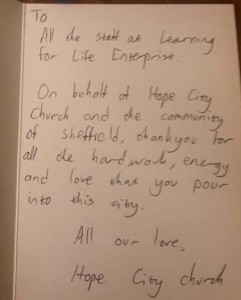 To
All the staff at Learning
for Life Enterprise.
On behalf of Hope City
Church and the community
of sheffield, thankyou for
all the hardwork, energy
and love that you pour
into this city.
All our love,
Hope City church